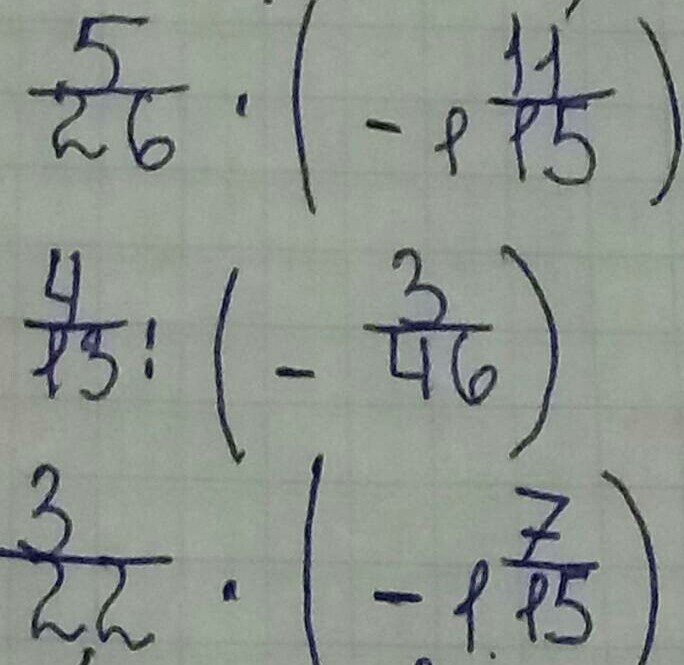 5/26 · (- 1 11/15)
4/13 : (- 3/46)
3/22 · (- 1 7/15)